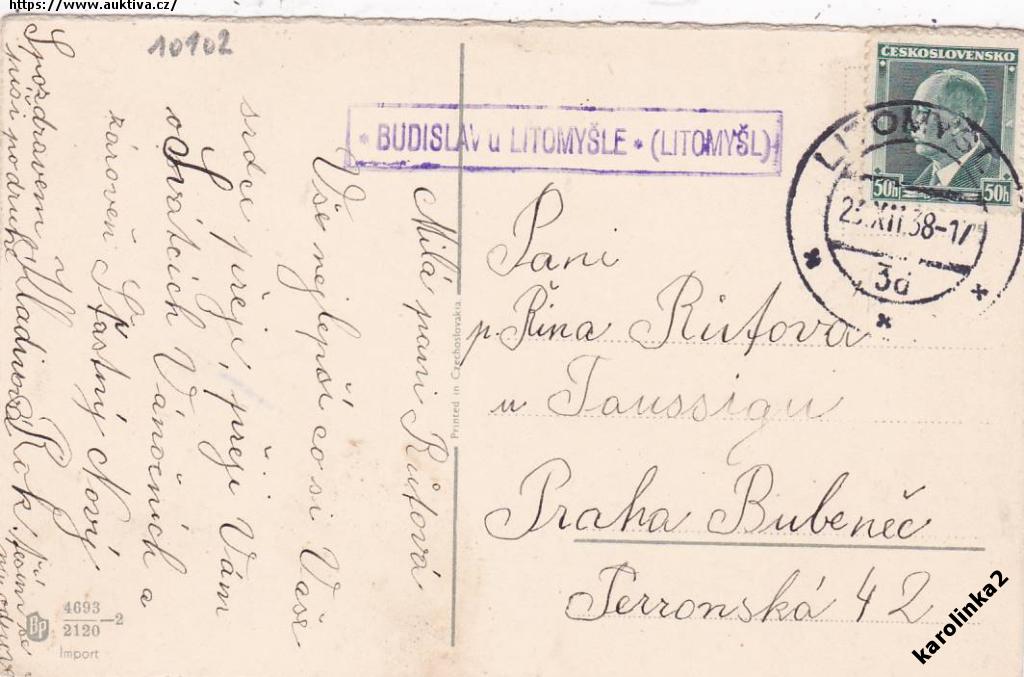 https://www.auktiva.cz/
10902
BUDISLAV u LITOMYŠLE * (LITOMYŠL)
ČESKOSLOVENSKO
50h 50h
LITOMYŠL
23.XII.38-17
3d
Milá paní Rifová
Vše nejlepší co si Vaše
srdce přeji, přeji Vám
o Svátcích Vánočních a
zároveň Šťastný Nový
Rok!
S pozdravem Hladíková
Printed in Czechoslovakia
Paní
p. Řina Rifova
u Taussigu
Praha Bubeneč
Terronská 42
BP
4693
2120 -2
Import
karolinka2